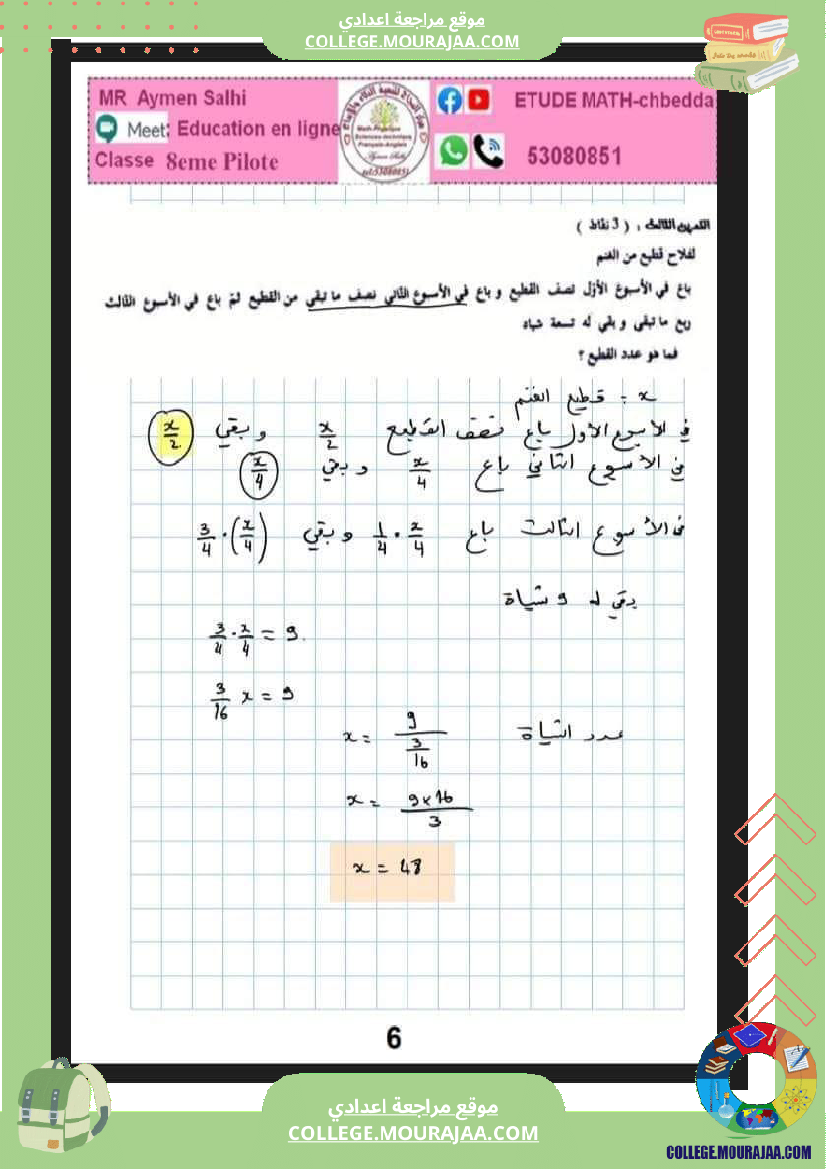 موقع مراجعة اعدادي
COLLEGE.MOURAJAA.COM
MR Aymen Salhi
Meet: Education en ligne
Classe 8eme Pilote
ETUDE MATH-chbedda
53080851
التمرين الثالث : ( 3 نقاط )
لفلاح قطيع من الغنم
باع في الأسبوع الأول نصف القطيع و باع في الأسبوع الثاني نصف ما تبقى من القطيع ثم باع في الأسبوع الثالث
ربع ما تبقى و بقي له تسعة شياه
فما هو عدد القطيع ؟
x : قطيع الغنم
في الأسبوع الأول باع نصف القطيع x/2 و بقي x/2
في الأسبوع الثاني باع x/4 و بقي x/4
في الأسبوع الثالث باع 1/4 · x/4 و بقي 3/4 · (x/4)
بقي له 9 شياة
3/4 · x/4 = 9
3/16 x = 9
عدد الشياة x = 9/(3/16)
x = 9×16/3
x = 48
6
موقع مراجعة اعدادي
COLLEGE.MOURAJAA.COM
COLLEGE.MOURAJAA.COM